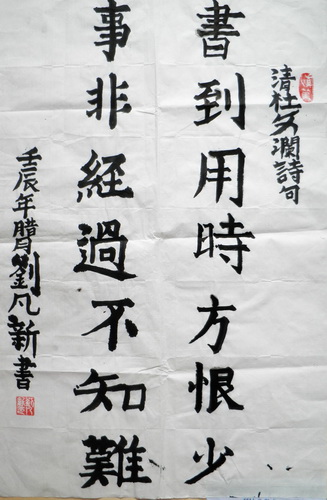 清杜文瀾詩句
書到用時方恨少
事非經過不知難
壬辰年腊月劉凡新書